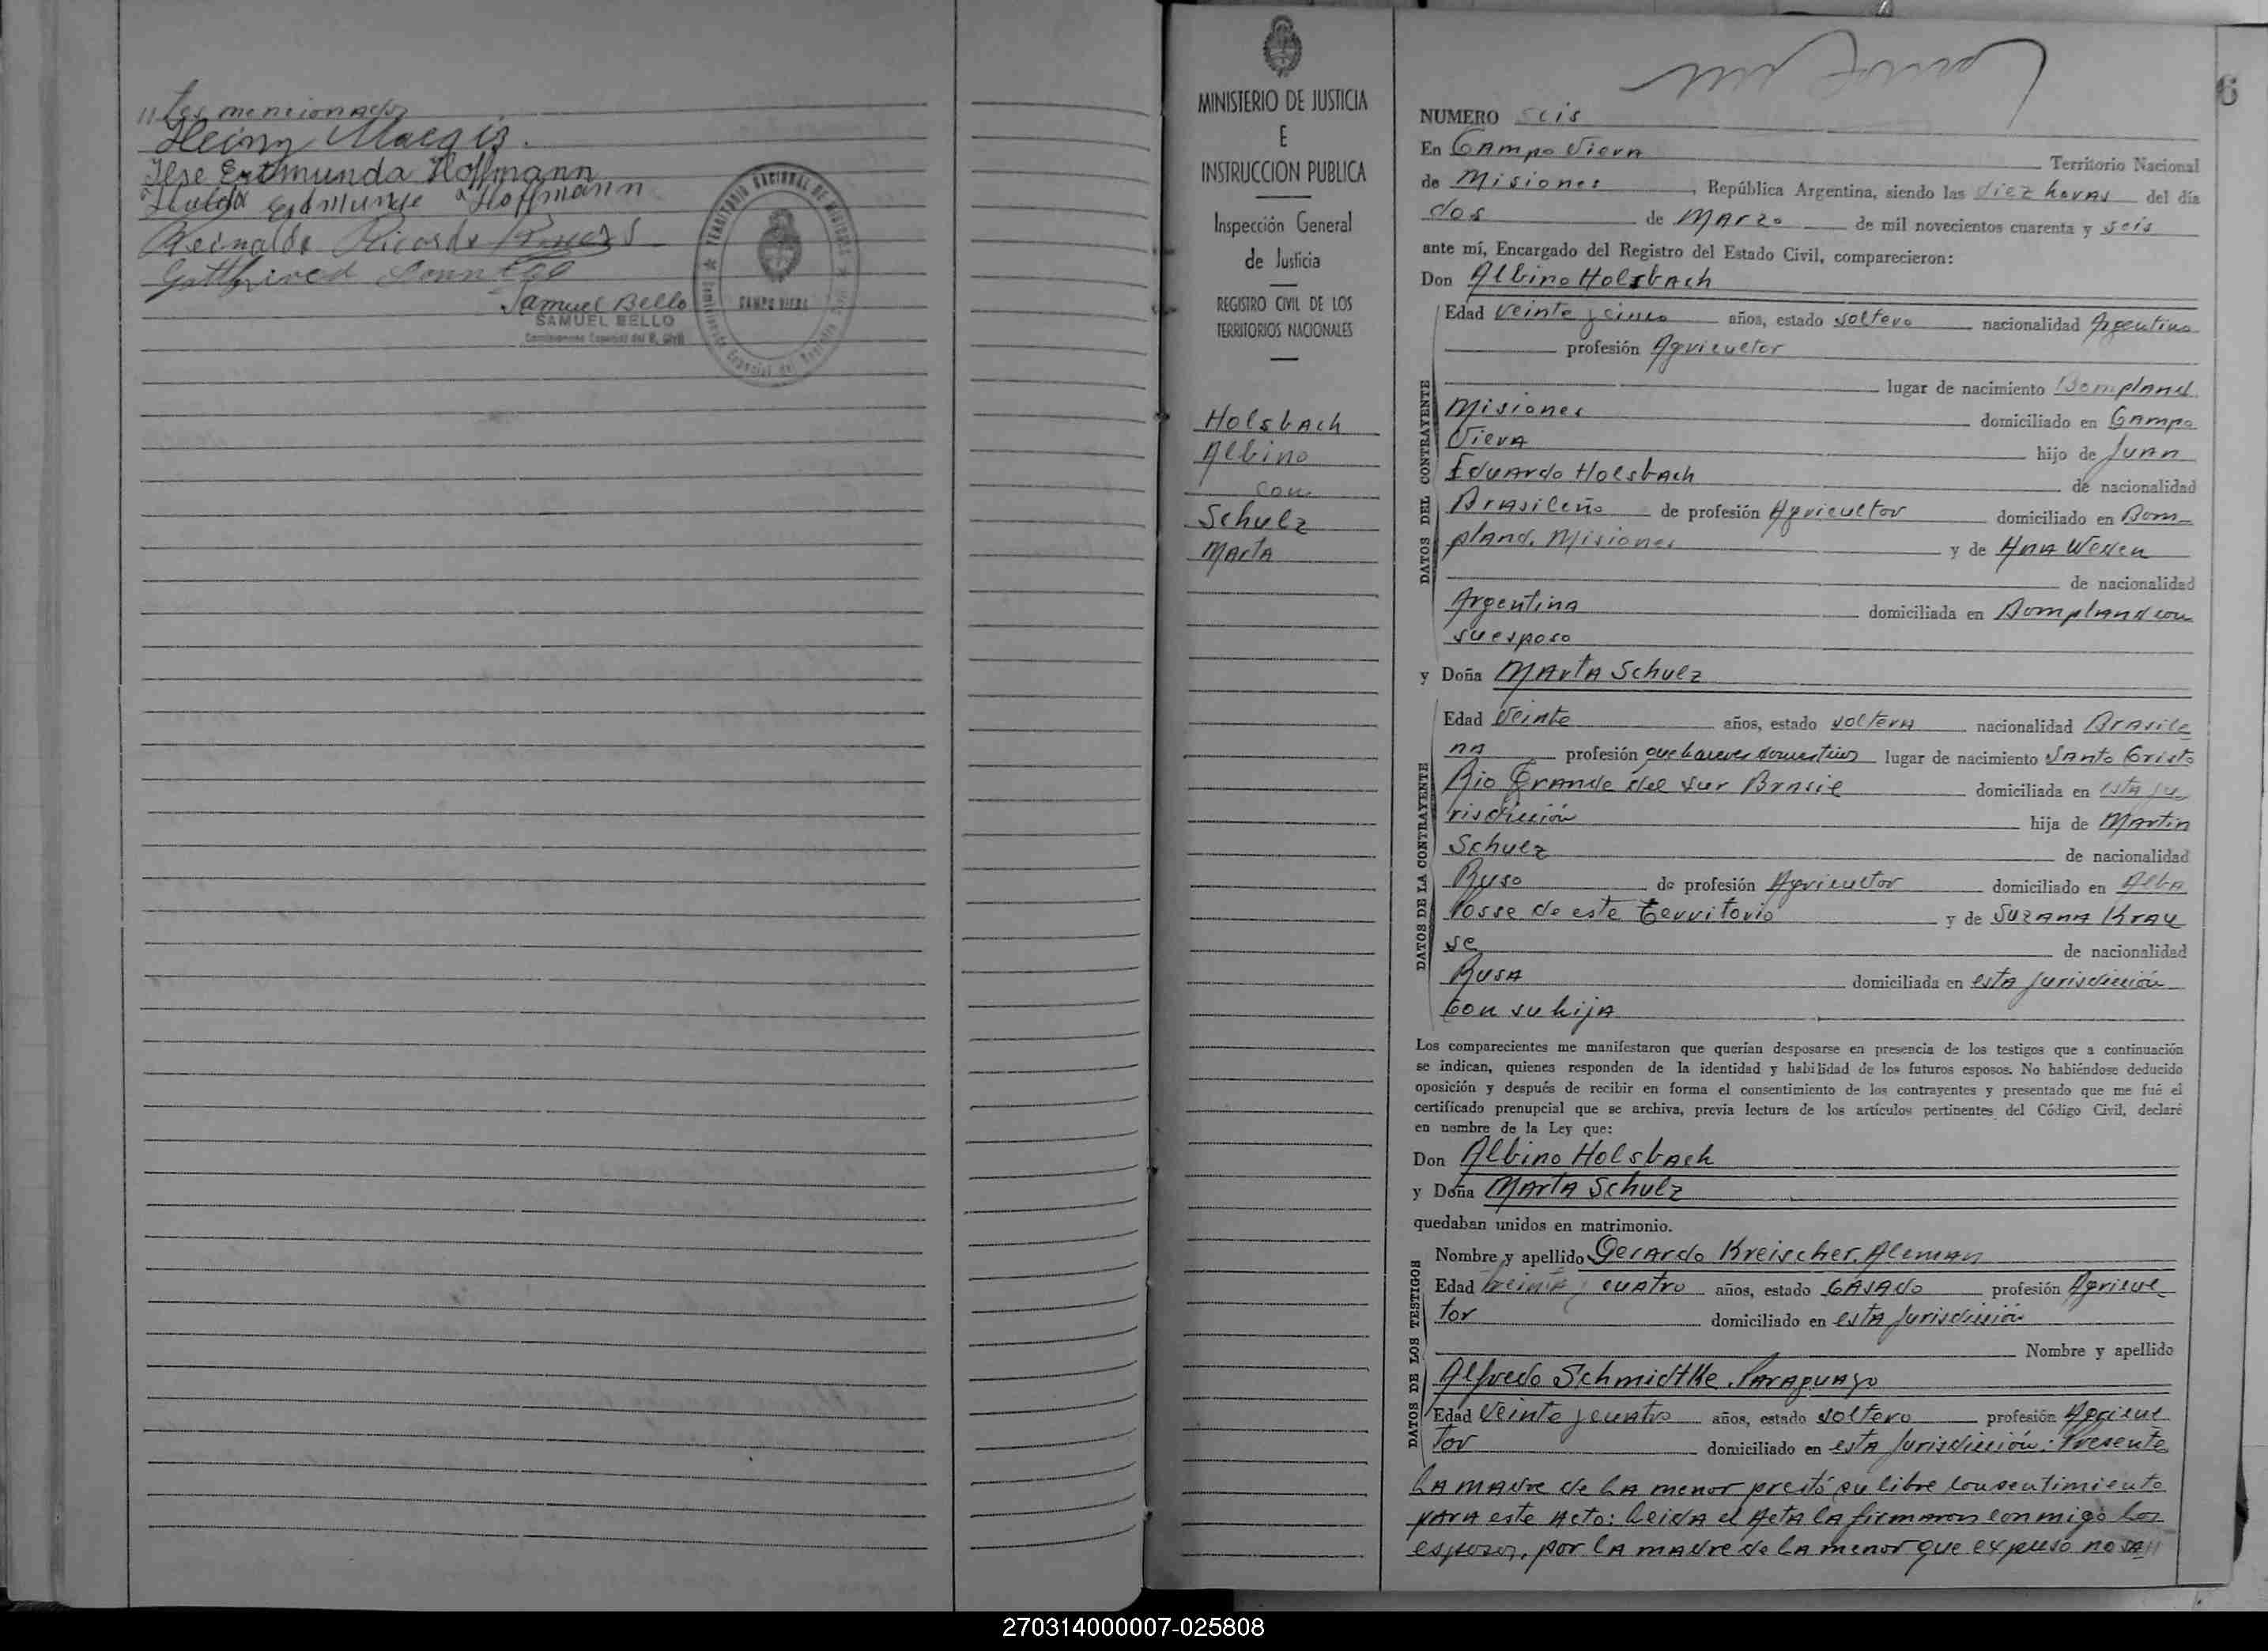 11 Los mencionados
Heinz
Ilse Erdmunda Hoffmann
Hulda Hoffmann
Reinaldo Ricardo
Gottfried
Samuel Bello
SAMUEL BELLO
Comisionado Especial del R. Civil
TERRITORIO NACIONAL DE MISIONES
CAMPO VIERA
Comisionado Especial del Registro Civil
MINISTERIO DE JUSTICIA
E
INSTRUCCION PUBLICA
Inspección General
de Justicia
REGISTRO CIVIL DE LOS
TERRITORIOS NACIONALES
Holsbach
Albino
con
Schulz
Marta
6
NUMERO seis
En Campo Viera Territorio Nacional
de Misiones, República Argentina, siendo las diez horas del día
dos de Marzo de mil novecientos cuarenta y seis
ante mí, Encargado del Registro del Estado Civil, comparecieron:
Don Albino Holsbach
DATOS DEL CONTRAYENTE
Edad veinte y cinco años, estado soltero nacionalidad Argentino
profesión Agricultor
lugar de nacimiento Bompland
Misiones domiciliado en Campo
Viera hijo de Juan
Eduardo Holsbach de nacionalidad
Brasileño de profesión Agricultor domiciliado en Bom-
pland. Misiones y de Ana
de nacionalidad
Argentina domiciliada en Bompland con
su esposo
y Doña Marta Schulz
DATOS DE LA CONTRAYENTE
Edad veinte años, estado soltera nacionalidad Brasile
na profesión quehaceres domesticos lugar de nacimiento Santo Cristo
Rio Grande del Sur Brasil domiciliada en esta ju
risdicción hija de Martin
Schulz de nacionalidad
Ruso de profesión Agricultor domiciliado en Alba
Posse de este Territorio y de Suzana Krau
se de nacionalidad
Rusa domiciliada en esta jurisdicción
con su hija
Los comparecientes me manifestaron que querían desposarse en presencia de los testigos que a continuación
se indican, quienes responden de la identidad y habilidad de los futuros esposos. No habiéndose deducido
oposición y después de recibir en forma el consentimiento de los contrayentes y presentado que me fué el
certificado prenupcial que se archiva, previa lectura de los artículos pertinentes del Código Civil, declaré
en nombre de la Ley que:
Don Albino Holsbach
y Doña Marta Schulz
quedaban unidos en matrimonio.
DATOS DE LOS TESTIGOS
Nombre y apellido Gerardo Kreischer. Aleman
Edad treinta y cuatro años, estado casado profesión Agricul-
tor domiciliado en esta jurisdicción
Nombre y apellido
Alfredo Schmidtke. Paraguayo
Edad veinte y cuatro años, estado soltero profesión Agricul
tor domiciliado en esta jurisdicción: Presente
la madre de la menor prestó su libre consentimiento
para este acto: Leida el Acta la firmaron conmigo los
esposos, por la madre de la menor que expuso no sa11
270314000007-025808